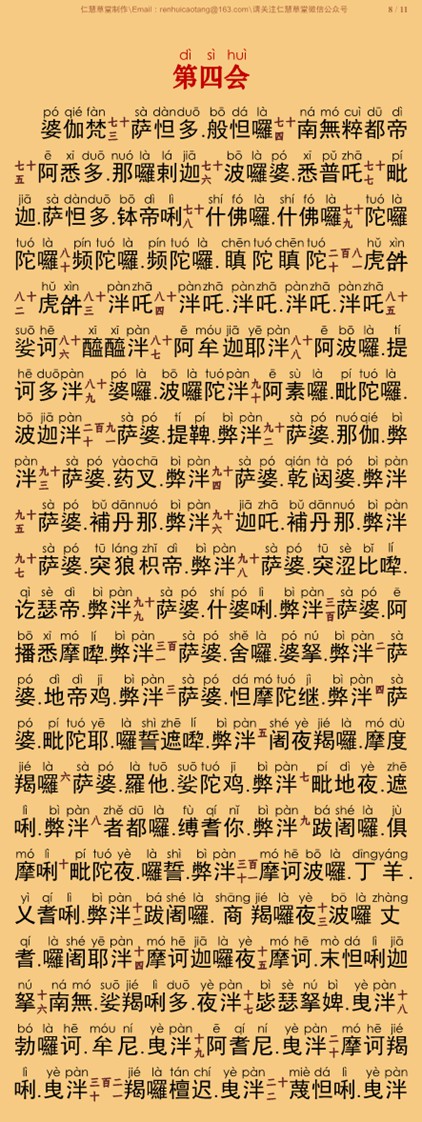 仁慧草堂制作\Email：renhuicaotang@163.com\请关注仁慧草堂微信公众号 8 / 11
dì sì huì
第四会
pó qié fàn sà dàn duō bō dá là ná mó cuì dū dì
婆伽梵七十三萨怛多.般怛囉七十四南無粹都帝
ē xī duō nuó là lá jiā bō là pó xī pǔ zhā pí
七十五阿悉多.那囉剌迦七十六波囉婆.悉普吒七十七毗
jiā sà dàn duō bō dì lì shí fó là shí fó là tuó là
迦.萨怛多.钵帝唎七十八什佛囉.什佛囉七十九陀囉
tuó là pín tuó là pín tuó là chēn tuó chēn tuó hǔ xìn
陀囉八十频陀囉.频陀囉.瞋陀瞋陀二百八十一虎𤙖
hǔ xìn pàn zhā pàn zhā pàn zhā pàn zhā pàn zhā
八十二虎𤙖八十三泮吒八十四泮吒.泮吒.泮吒.泮吒八十五
suō hē xī xī pàn ē móu jiā yē pàn ē bō là tí
娑诃八十六醯醯泮八十七阿牟迦耶泮八十八阿波囉.提
hē duō pàn pó là bō là tuó pàn ē sù là pí tuó là
诃多泮八十九婆囉.波囉陀泮九十阿素囉.毗陀囉.
bō jiā pàn sà pó tí pí bì pàn sà pó nuó qié bì
波迦泮二百九十一萨婆.提鞞.弊泮九十二萨婆.那伽.弊
pàn sà pó yào chā bì pàn sà pó qián tà pó bì pàn
泮九十三萨婆.药叉.弊泮九十四萨婆.乾闼婆.弊泮
sà pó bǔ dān nuó bì pàn jiā zhā bǔ dān nuó bì pàn
九十五萨婆.補丹那.弊泮九十六迦吒.補丹那.弊泮
sà pó tū láng zhǐ dì bì pàn sà pó tū sè bǐ lí
九十七萨婆.突狼枳帝.弊泮九十八萨婆.突涩比㗚.
qì sè dì bì pàn sà pó shí pó lì bì pàn sà pó ē
讫瑟帝.弊泮九十九萨婆.什婆唎.弊泮三百萨婆.阿
bō xī mó lí bì pàn sà pó shě là pó nú bì pàn sà
播悉摩㗚.弊泮三百一萨婆.舍囉.婆拏.弊泮二萨
pó dì dì jī bì pàn sà pó dá mó tuó jì bì pàn sà
婆.地帝鸡.弊泮三萨婆.怛摩陀继.弊泮四萨
pó pí tuó yē là shì zhē lí bì pàn shé yè jié là mó dù
婆.毗陀耶.囉誓遮㗚.弊泮五阇夜羯囉.摩度
jié là sà pó là tuō suō tuó jī bì pàn pí dì yè zhē
羯囉六萨婆.羅他.娑陀鸡.弊泮七毗地夜.遮
lì bì pàn zhě dū là fù qí nǐ bì pàn bá shé là jù
唎.弊泮八者都囉.缚耆你.弊泮九跋阇囉.俱
mó lì pí tuó yè là shì bì pàn mó hē bō là dīng yáng
摩唎十毗陀夜.囉誓.弊泮三百十一摩诃波囉.丁羊.
yì qí lì bì pàn bá shé là shāng jié là yè bō là zhàng
乂耆唎.弊泮十二跋阇囉.商羯囉夜十三波囉丈
qí là shé yē pàn mó hē jiā là yè mó hē mò dá lì jiā
耆.囉阇耶泮十四摩诃迦囉夜十五摩诃.末怛唎迦
nú ná mó suō jié lì duō yè pàn bì sè nú bì yè pàn
拏十六南無.娑羯唎多.夜泮十七毖瑟拏婢.曳泮十八
bó là hē móu ní yè pàn ē qí ní yè pàn mó hē jié
勃囉诃.牟尼.曳泮十九阿耆尼.曳泮二十摩诃羯
lì yè pàn jié là tán chí yè pàn miè dá lì yè pàn
唎.曳泮三百二十一羯囉檀迟.曳泮二十二蔑怛唎.曳泮